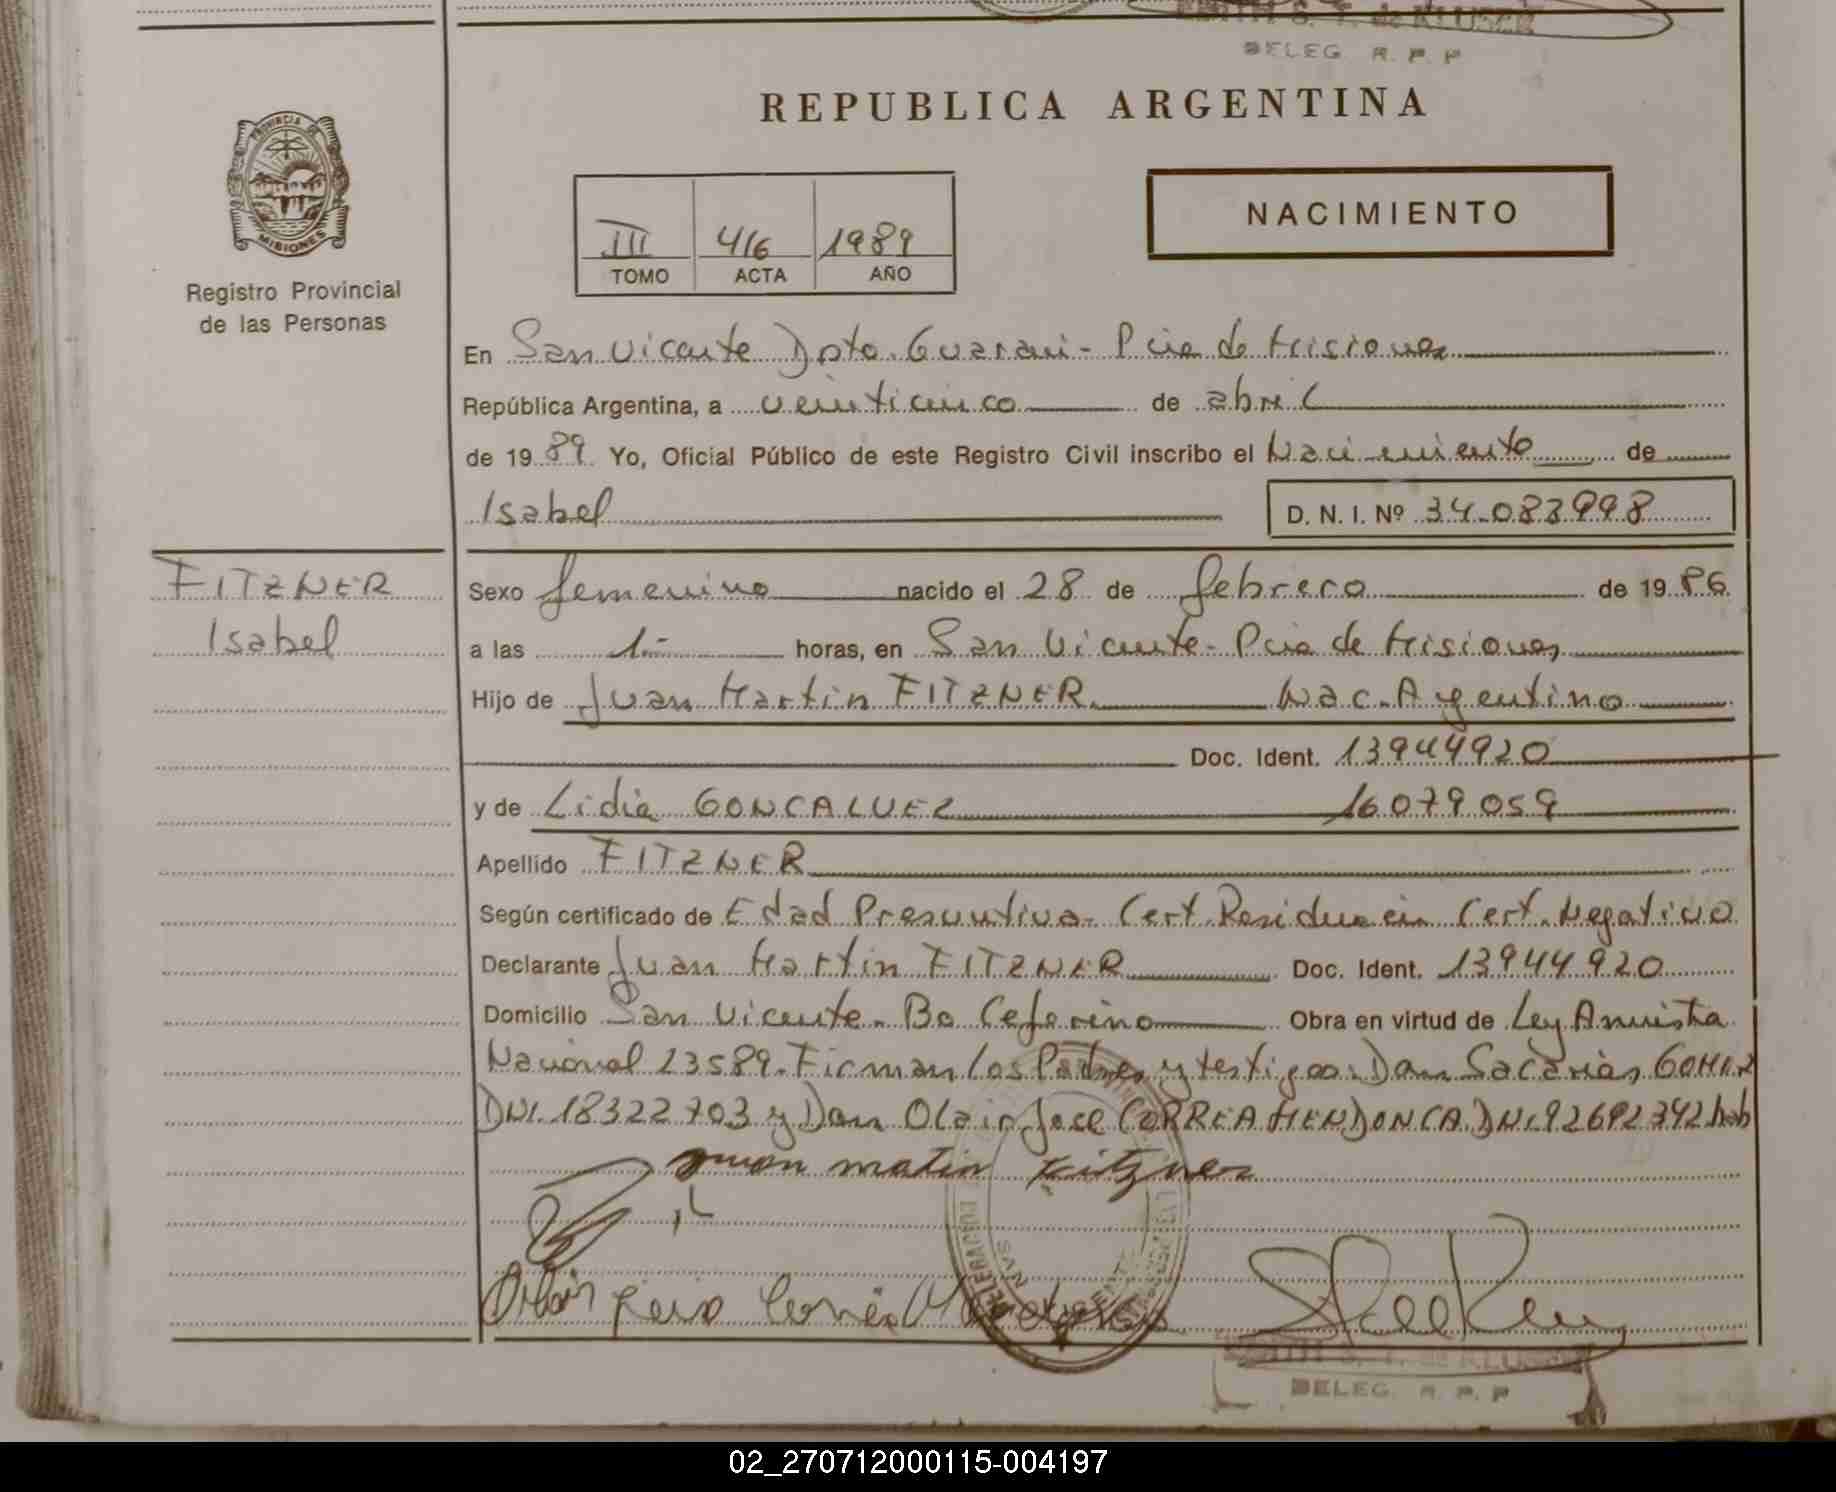 EDITH S. T. de KLUSER
DELEG. R. P. P
REPUBLICA ARGENTINA
PROVINCIA DE
MISIONES
Registro Provincial
de las Personas
NACIMIENTO
III 416 1989
TOMO ACTA AÑO
En San Vicente Dpto. Guarani - Pcia de Misiones
República Argentina, a veinticinco de abril
de 1989 Yo, Oficial Público de este Registro Civil inscribo el Nacimiento de
Isabel D. N. I. Nº 34.083998
FITZNER
Isabel
Sexo femenino nacido el 28 de febrero de 1986
a las 1- horas, en San Vicente - Pcia de Misiones
Hijo de Juan Martin FITZNER Nac. Argentino
Doc. Ident. 13944920
y de Lidia GONCALVEZ 16.079.059
Apellido FITZNER
Según certificado de Edad Presuntiva - Cert. Residencia Cert. Negativo
Declarante Juan Martin FITZNER Doc. Ident. 13944920
Domicilio San Vicente - Bo Ceferino Obra en virtud de Ley Amnistia
Nacional 23589. Firman los Padres y testigos: Don Sacarias GOMEZ
DNI. 18322703 y Don Olair Jose CORREA MENDONCA. DNI. 92692342
juan matin Fitzner
EDITH S. T. de KLUSER
DELEG. R. P. P
02_270712000115-004197